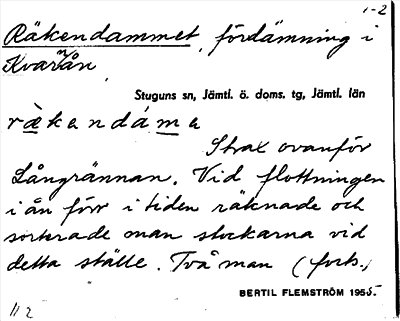 1-2
Räkendammet, fördämning i
Kvarnån
Stuguns sn, Jämtl. ö. doms. tg, Jämtl. län
ràkendáma
Strax ovanför
Långrännan. Vid flottningen
i ån förr i tiden räknade och
sorterade man stockarna vid
detta ställe. Två man (forts.)
BERTIL FLEMSTRÖM 1955.